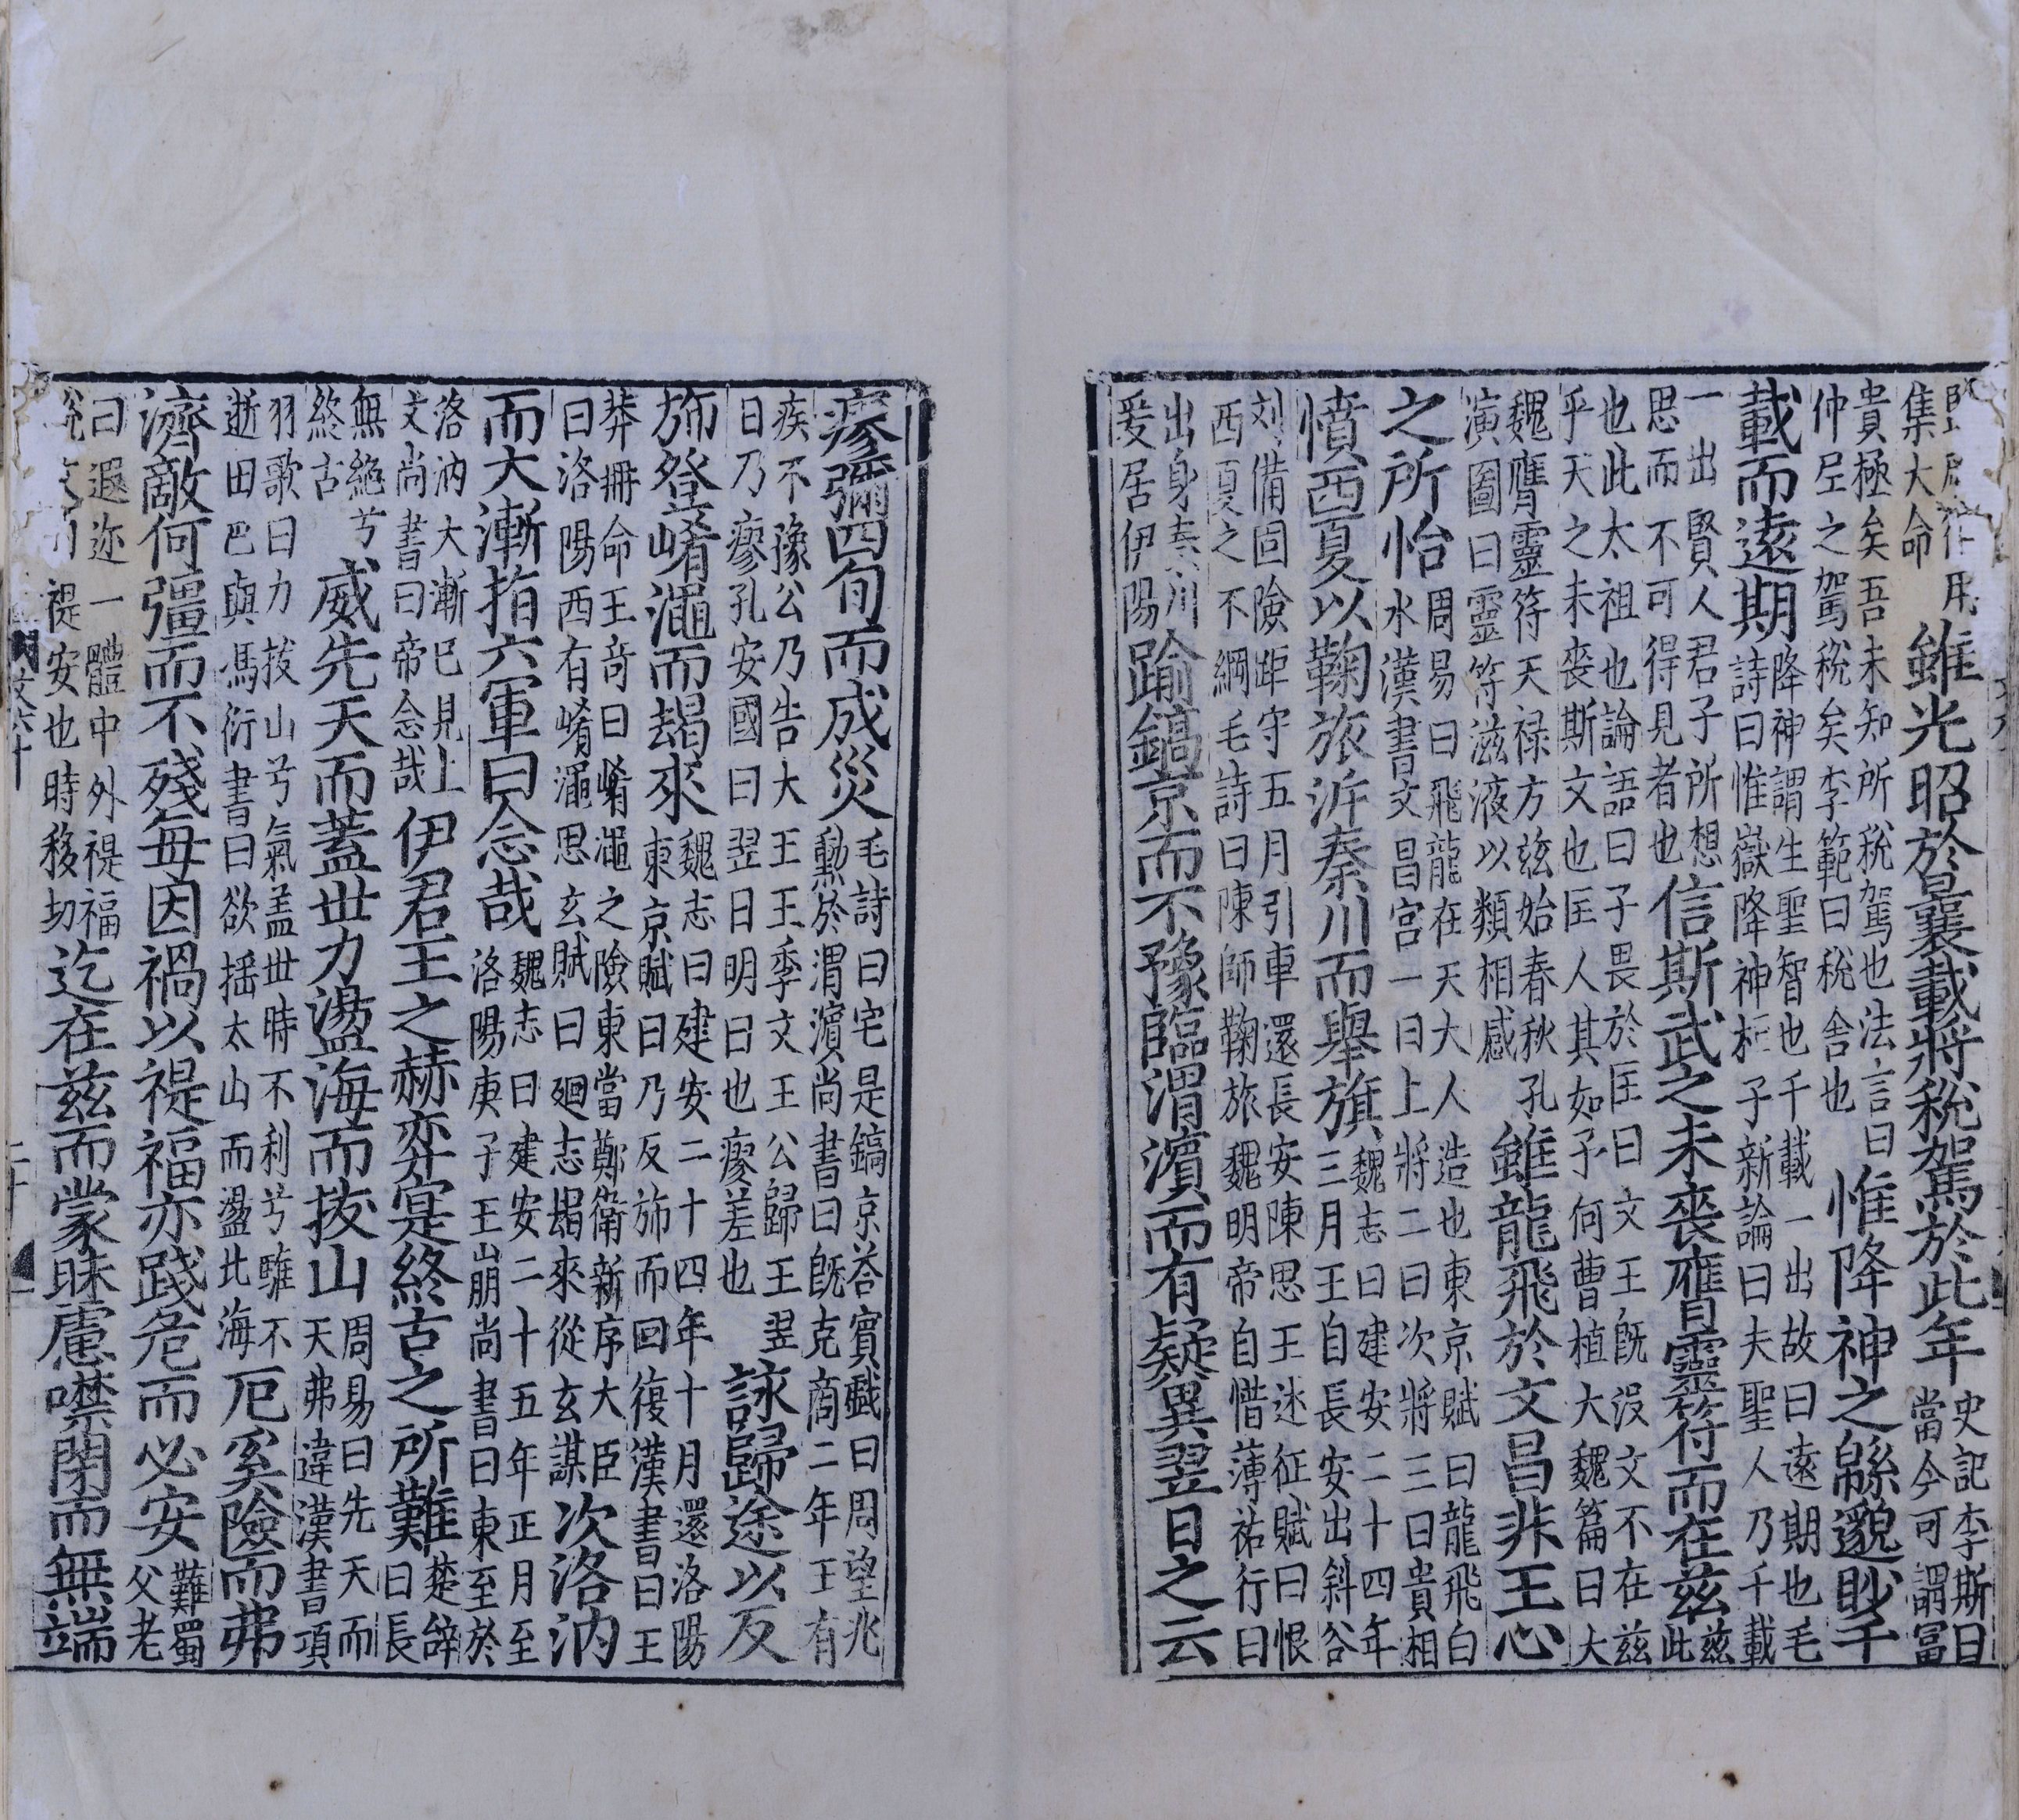 集大命
雖光昭於曩載將稅駕於此年
史記李斯曰
當今可謂富
貴極矣吾未知所稅駕也法言曰
仲尼之駕稅矣李範曰稅舍也
惟降神之緜邈眇千
載而遠期
降神謂生聖智也千載一出故曰遠期也毛
詩曰惟嶽降神桓子新論曰夫聖人乃千載
一出賢人君子所想
思而不可得見者也
信斯武之未喪膺靈符而在茲
茲
此
也此太祖也論語曰子畏於匡曰文王旣沒文不在茲
乎天之未喪斯文也匡人其如予何曹植大魏篇曰大
魏膺靈符天禄方兹始春秋孔
演圖曰靈符滋液以類相感
雖龍飛於文昌非王心
之所怡
周易曰飛龍在天大人造也東京賦曰龍飛白
水漢書文昌宮一曰上將二曰次將三曰貴相
憤西夏以鞠旅泝秦川而舉旗
魏志曰建安二十四年
三月王自長安出斜谷
刘備固險距守五月引車還長安陳思王述征賦曰恨
西夏之不綱毛詩曰陳師鞠旅魏明帝自惜薄祜行曰
出身秦川
爰居伊陽
踰鎬京而不豫臨渭濵而有疑冀翌日之云
瘳彌四旬而成災
毛詩曰宅是鎬京荅賓戲曰周望兆
動於渭濵尚書曰旣克商二年王有
疾不豫公乃告大王王季文王公歸王翌
日乃瘳孔安國曰翌日明日也瘳差也
詠歸途以反
旆登崤澠而朅來
魏志曰建安二十四年十月還洛陽
東京賦曰乃反旆而回復漢書曰王
莽冊命王竒曰崤澠之險東當鄭衛新序大臣
曰洛陽西有崤澠思玄賦曰廻志朅來從玄謀
次洛汭
而大漸指六軍曰念哉
魏志曰建安二十五年正月至
洛陽庚子王崩尚書曰東至於
洛汭大漸巳見上
文尚書曰帝念哉
伊君王之赫弈寔終古之所難
楚辭
曰長
無絶兮
終古
威先天而蓋世力盪海而拔山
周易曰先天而
天弗違漢書項
羽歌曰力拔山兮氣盖世時不利兮騅不
逝田巴與馮衍書曰欲揺太山而盪北海
厄奚險而弗
濟敵何彊而不殘每因禍以禔福亦踐危而必安
難蜀
父老
曰遐迩一體中外禔福
禔安也時移切
迄在茲而蒙昧慮噤閉而無端